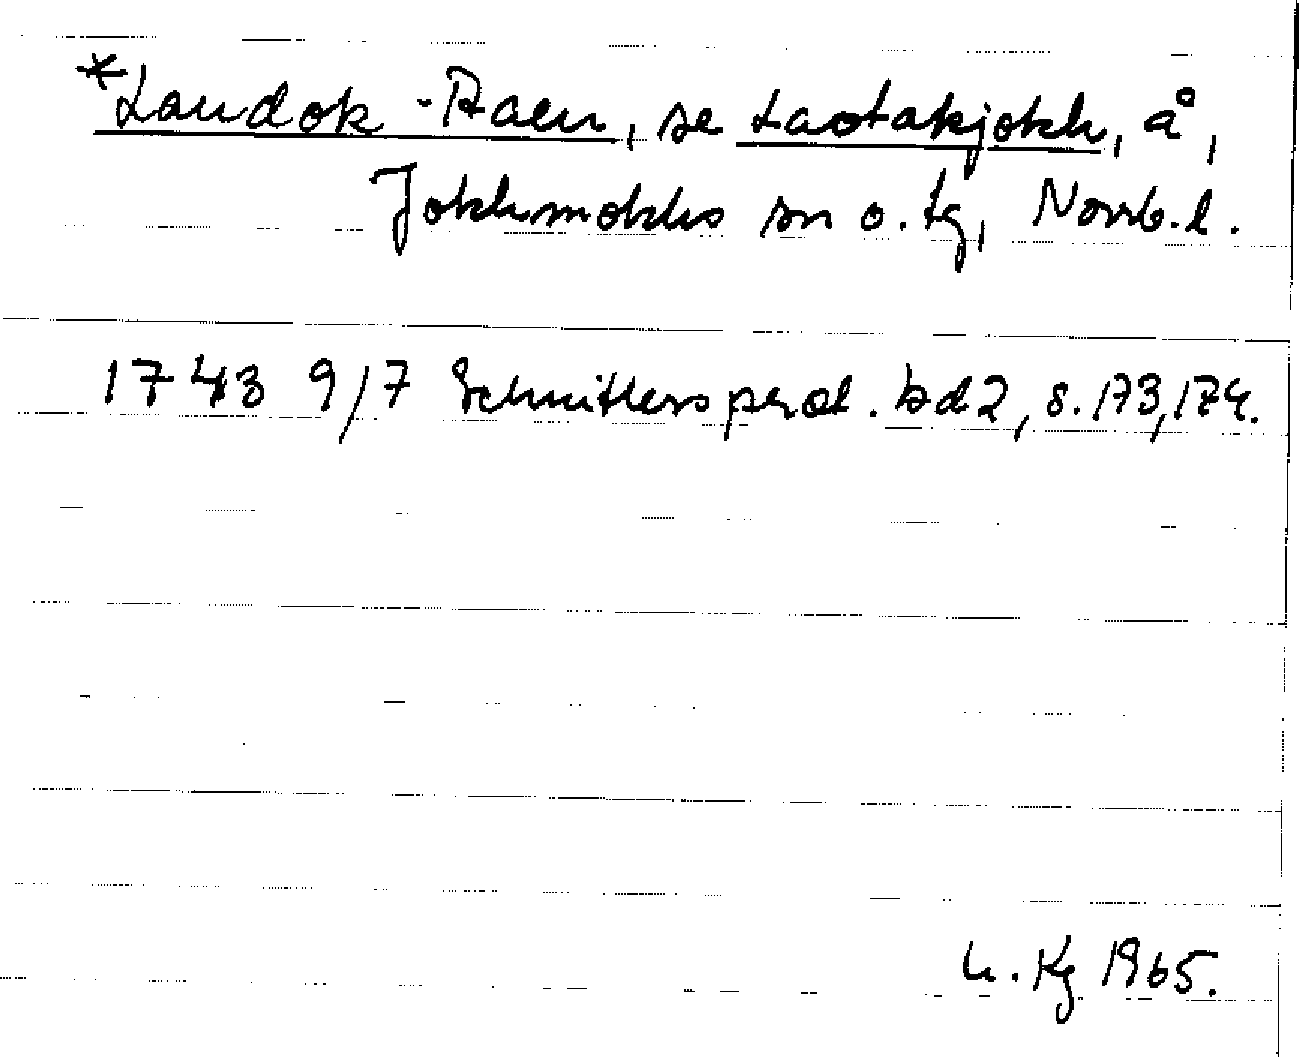 *Laudok-Aaen, se Laotakjokk, å,
Jokkmokks sn o. tg, Norrb. l.
1743 9/7 Schnitlers prot. bd 2, s. 173, 174.
Kg 1965.